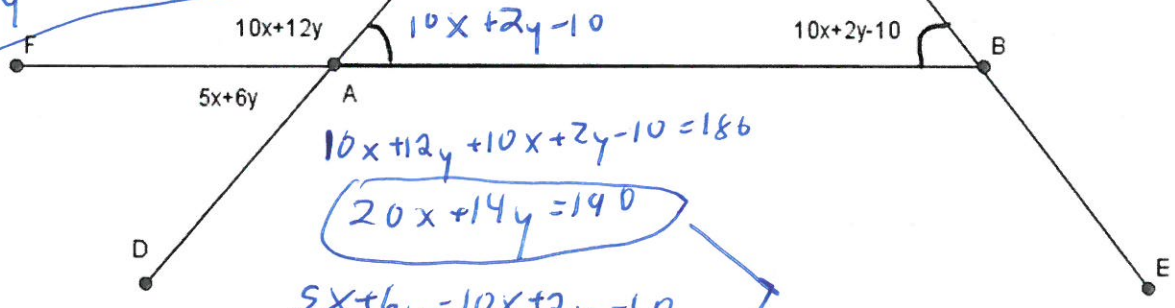 y
10x+12y 10x+2y-10 10x+2y-10
F B
5x+6y A
10x+12y+10x+2y-10=180
20x+14y=190
D
E
5x+6y=10x+2y-10